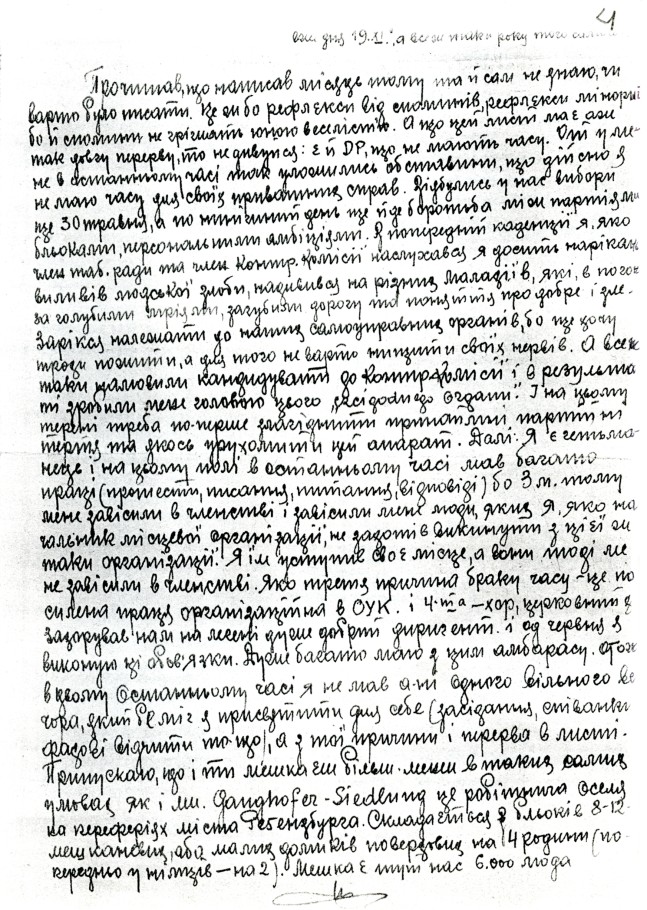 4
вже дня 19.XI., а всеж таки року того самого
Прочитав, що написав місяць тому та й сам не знаю, чи
варто було писати. Це ж бо рефлекси від споминів, рефлекси мінорні
бо й спомини не грішать юною веселістю. А що цей лист має аж
так довгу перерву, то не дивуйся: є й DP, що не мають часу. От у ме-
не в останньому часі так уложились обставини, що дійсно я
не маю часу для своїх приватних справ. Відбулись у нас вибори
ще 30 травня, а по нинішний день ще йде боротьба між партіями
бльоками, персональними амбіціями. В попередній каденції я, яко
член таб. ради та член контр. комісії наслухався я досить нарікань
виливів людської злоби, надивився на різних Маладіїв, які, в погоні
за голубими мріями, загубили дорогу та поняття про добре і зле.
Зарікся належати до наших самоуправних органів, бо ще хочу
трохи пожити, а для того не варто нищити своїх нервів. А все ж
таки намовили кандидувати до контр. комісії і в результа-
ті зробили мене головою цього „всідодного органу". І на цьому
терені треба по-перше злагіднити принаймні партійні
тертя та якось урухомити цей апарат. Далі: Я є гетьма-
нець і на цьому полі в останньому часі мав багато
праці (протести, писання, питання, відповіді) бо 3 м. тому
мене завісили в членстві і завісили мене люди, яких я, яко на-
чальник місцевої організації, не захотів викинути з цієї ж
таки організації. Я їм уступив своє місце, а вони тоді ме-
не завісили в членстві. Яко третя причина браку часу – це по-
силена праця організаційна в ОУК. і 4-та – хор, церковний
Захорував нам на легені дуже добрий диригент і од червня я
виконую ці обов'язки. Дуже багато маю з цим амбарасу. Отож
в цьому останньому часі я не мав а-ні одного вільного ве-
чора, який би міг я присвятити для себе (засідання, співанки
фахові відчити то-що), а з тої причини і перерва в листі.
Припускаю, що і ти мешкаєш більш-менш в таких самих
умовах як і ми. Ganghofer-Siedlung це робітнича оселя
на переферіях міста Регензбурга. Складається з бльоків 8-12
мешканевих, або малих домиків поверхових на 4 родини (по-
передньо у німців – на 2). Мешкає тут нас 6.000 люда